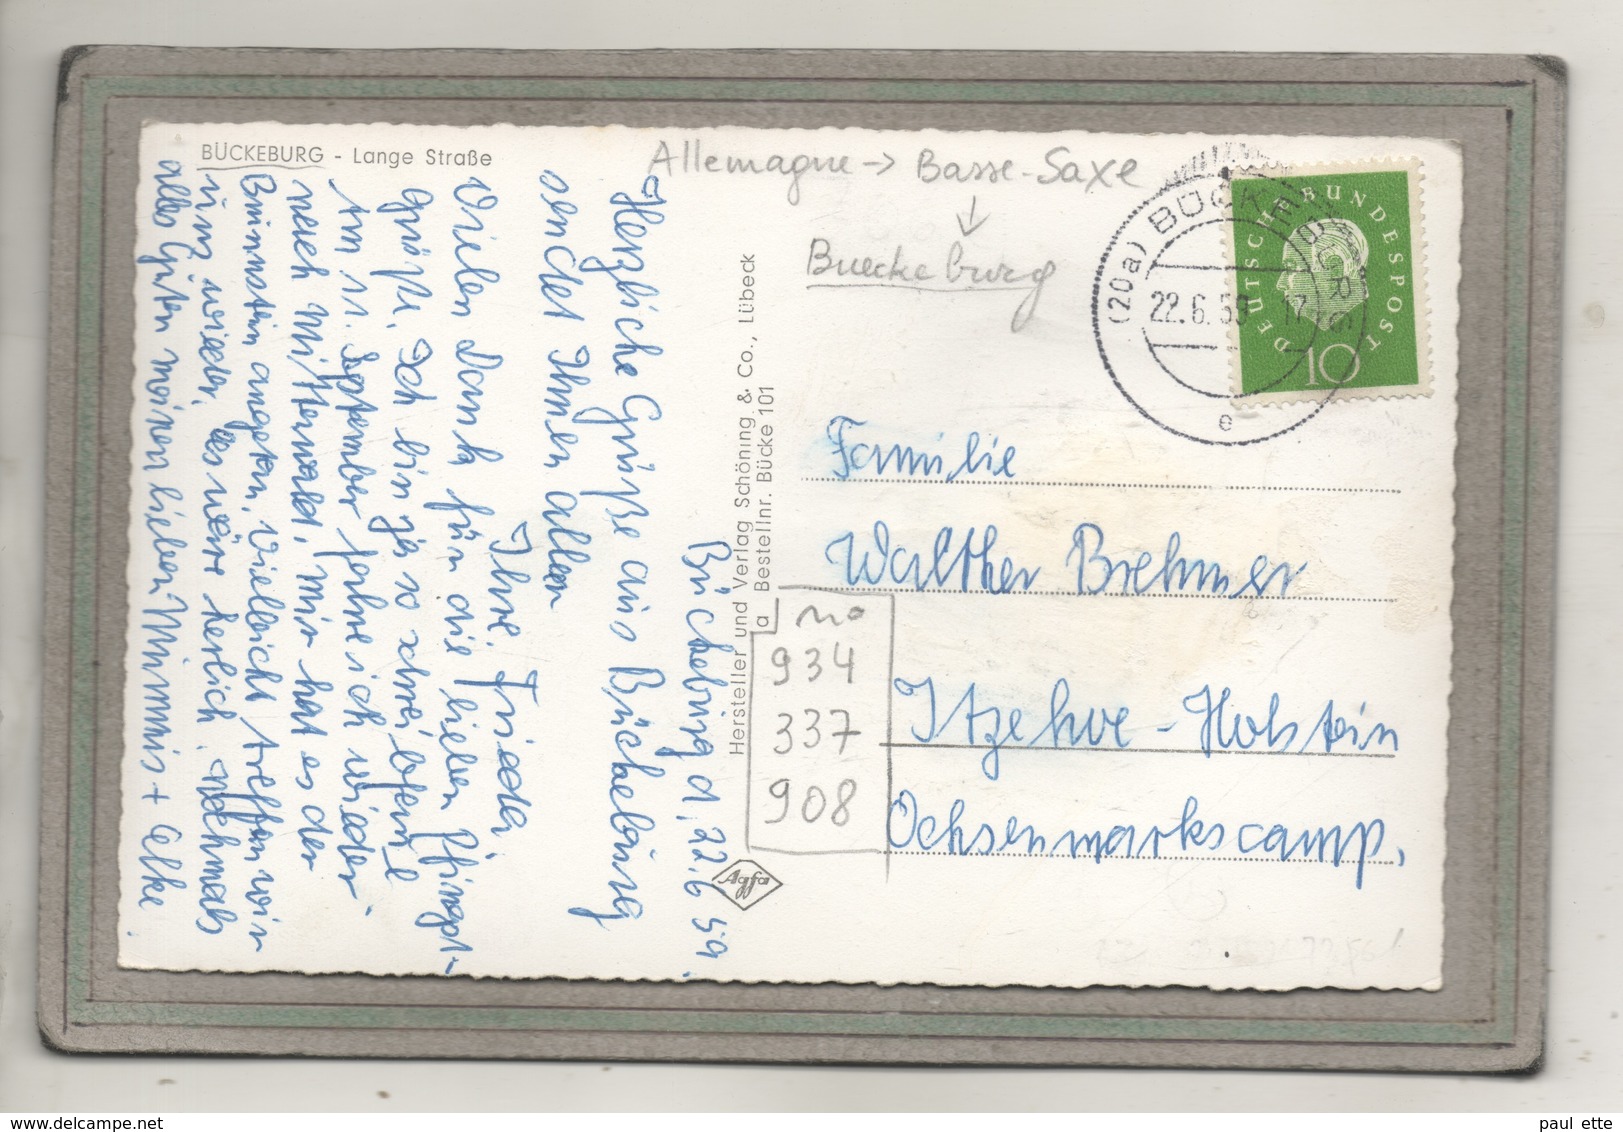 BÜCKEBURG - Lange Straße
Allemagne -> Basse-Saxe
Bueckeburg
(20a) BÜCKEBURG
22.6.59 - 17
e
DEUTSCHE BUNDESPOST
10
Bückeburg d. 22.6.59.
Herzliche Grüße aus Bückeburg
sendet Ihnen allen
Ihre Frieda.
Vielen Dank für die lieben Pfingst-
grüße. Ich bin ja so schreibfaul
Am 11. September fahre ich wieder
nach Mittenwald, mir hat es der
Brünnstein angetan, vielleicht treffen wir
uns wieder, das wäre herlich. Nochmals
alles Guten meinen lieben Mimmis + Elke.
Hersteller und Verlag Schöning & Co., Lübeck
a Bestellnr. Bücke 101
Agfa
no
934
337
908
Familie
Walther Brehmer
Itzehoe-Holstein
Ochsenmarkscamp.
paul ette